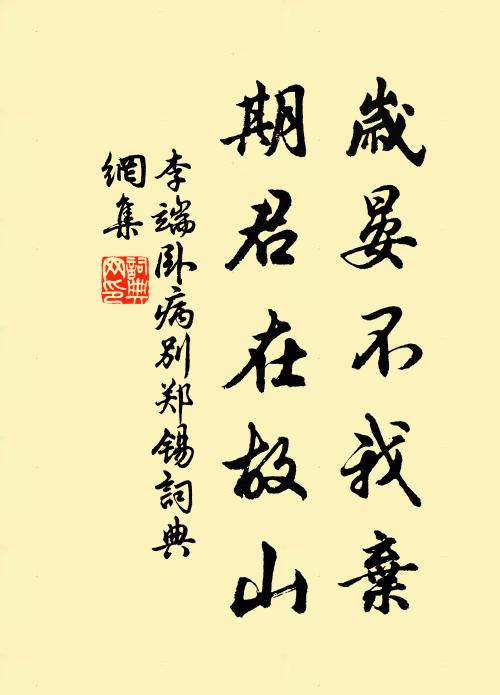 歲晏不我棄
期君在故山
李端卧病別郑锡詞典
網集
詞典
网印